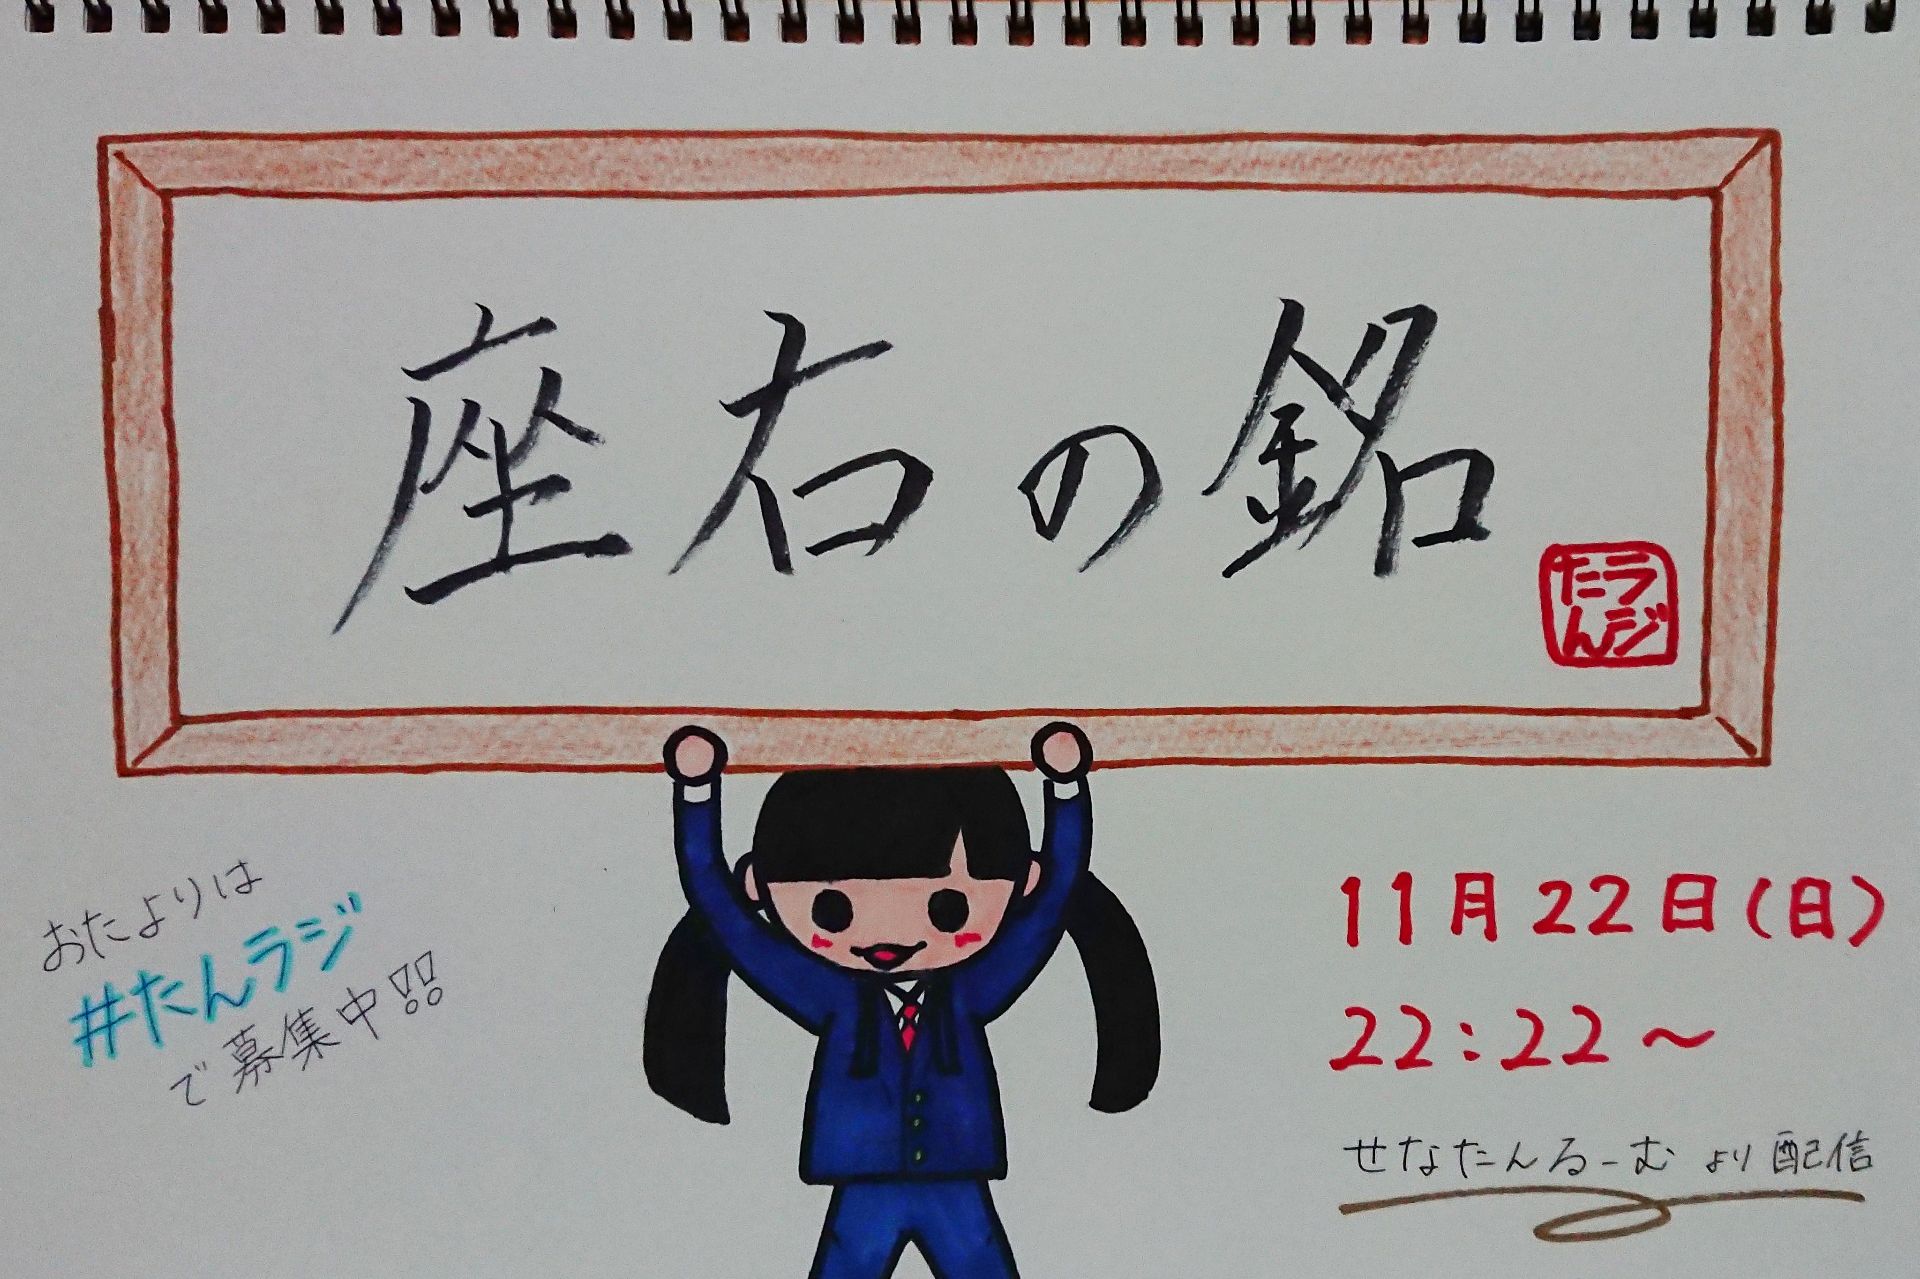 座右の銘
たん
ラジ
おたよりは
#たんラジ
で募集中!!
11月22日(日)
22:22〜
せなたんるーむより配信